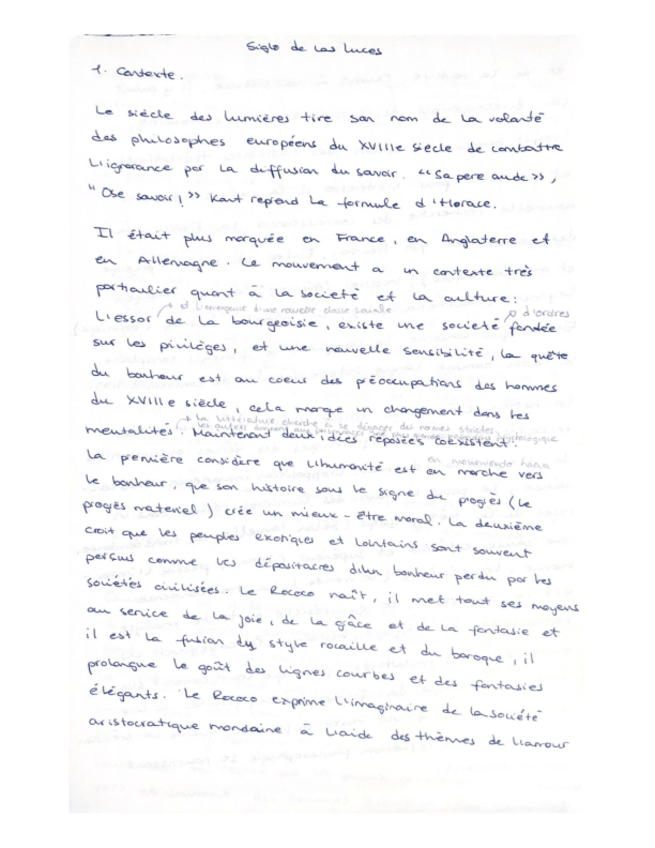 Siglo de las luces
1. Contexte.
Le siècle des lumières tire son nom de la volonté
des philosophes européens du XVIIIe siècle de combattre
l'ignorance par la diffusion du savoir. "Sapere aude",
"Ose savoir!" Kant reprend la formule d'Horace.
Il était plus marquée en France, en Anglaterre et
en Allemagne. Le mouvement a un contexte très
particulier quant à la societé et la culture:
→ et l'emergence d'une nouvelle classe sociale
→ d'ordres
L'essor de la bourgeoisie, existe une societé fondée
sur les privilèges, et une nouvelle sensibilité, la quête
du bonheur est au coeur des préoccupations des hommes
du XVIIIe siècle, cela marque un changement dans les
→ La littérature cherche à se dégager des normes strictes,
les auteurs
psychologique
mentalités. Maintenant deux idées coéxistent.
en moviendo hacia
La première considère que l'humanité est en marche vers
le bonheur, que son histoire sous le signe du progrès (le
progrès materiel) crée un mieux-être moral. La deuxième
croit que les peuples exotiques et lointains sont souvent
perçus comme les dépositaires d'un bonheur perdu par les
sociétés civilisées. Le Rococo naît, il met tout ses moyens
au service de la joie, de la grâce et de la fantasie et
il est la fusion du style rocaille et du baroque, il
prolongue le goût des lignes courbes et des fantasies
élégants. Le Rococo exprime l'imaginaire de la société
aristocratique mondaine à l'aide des thèmes de l'amour